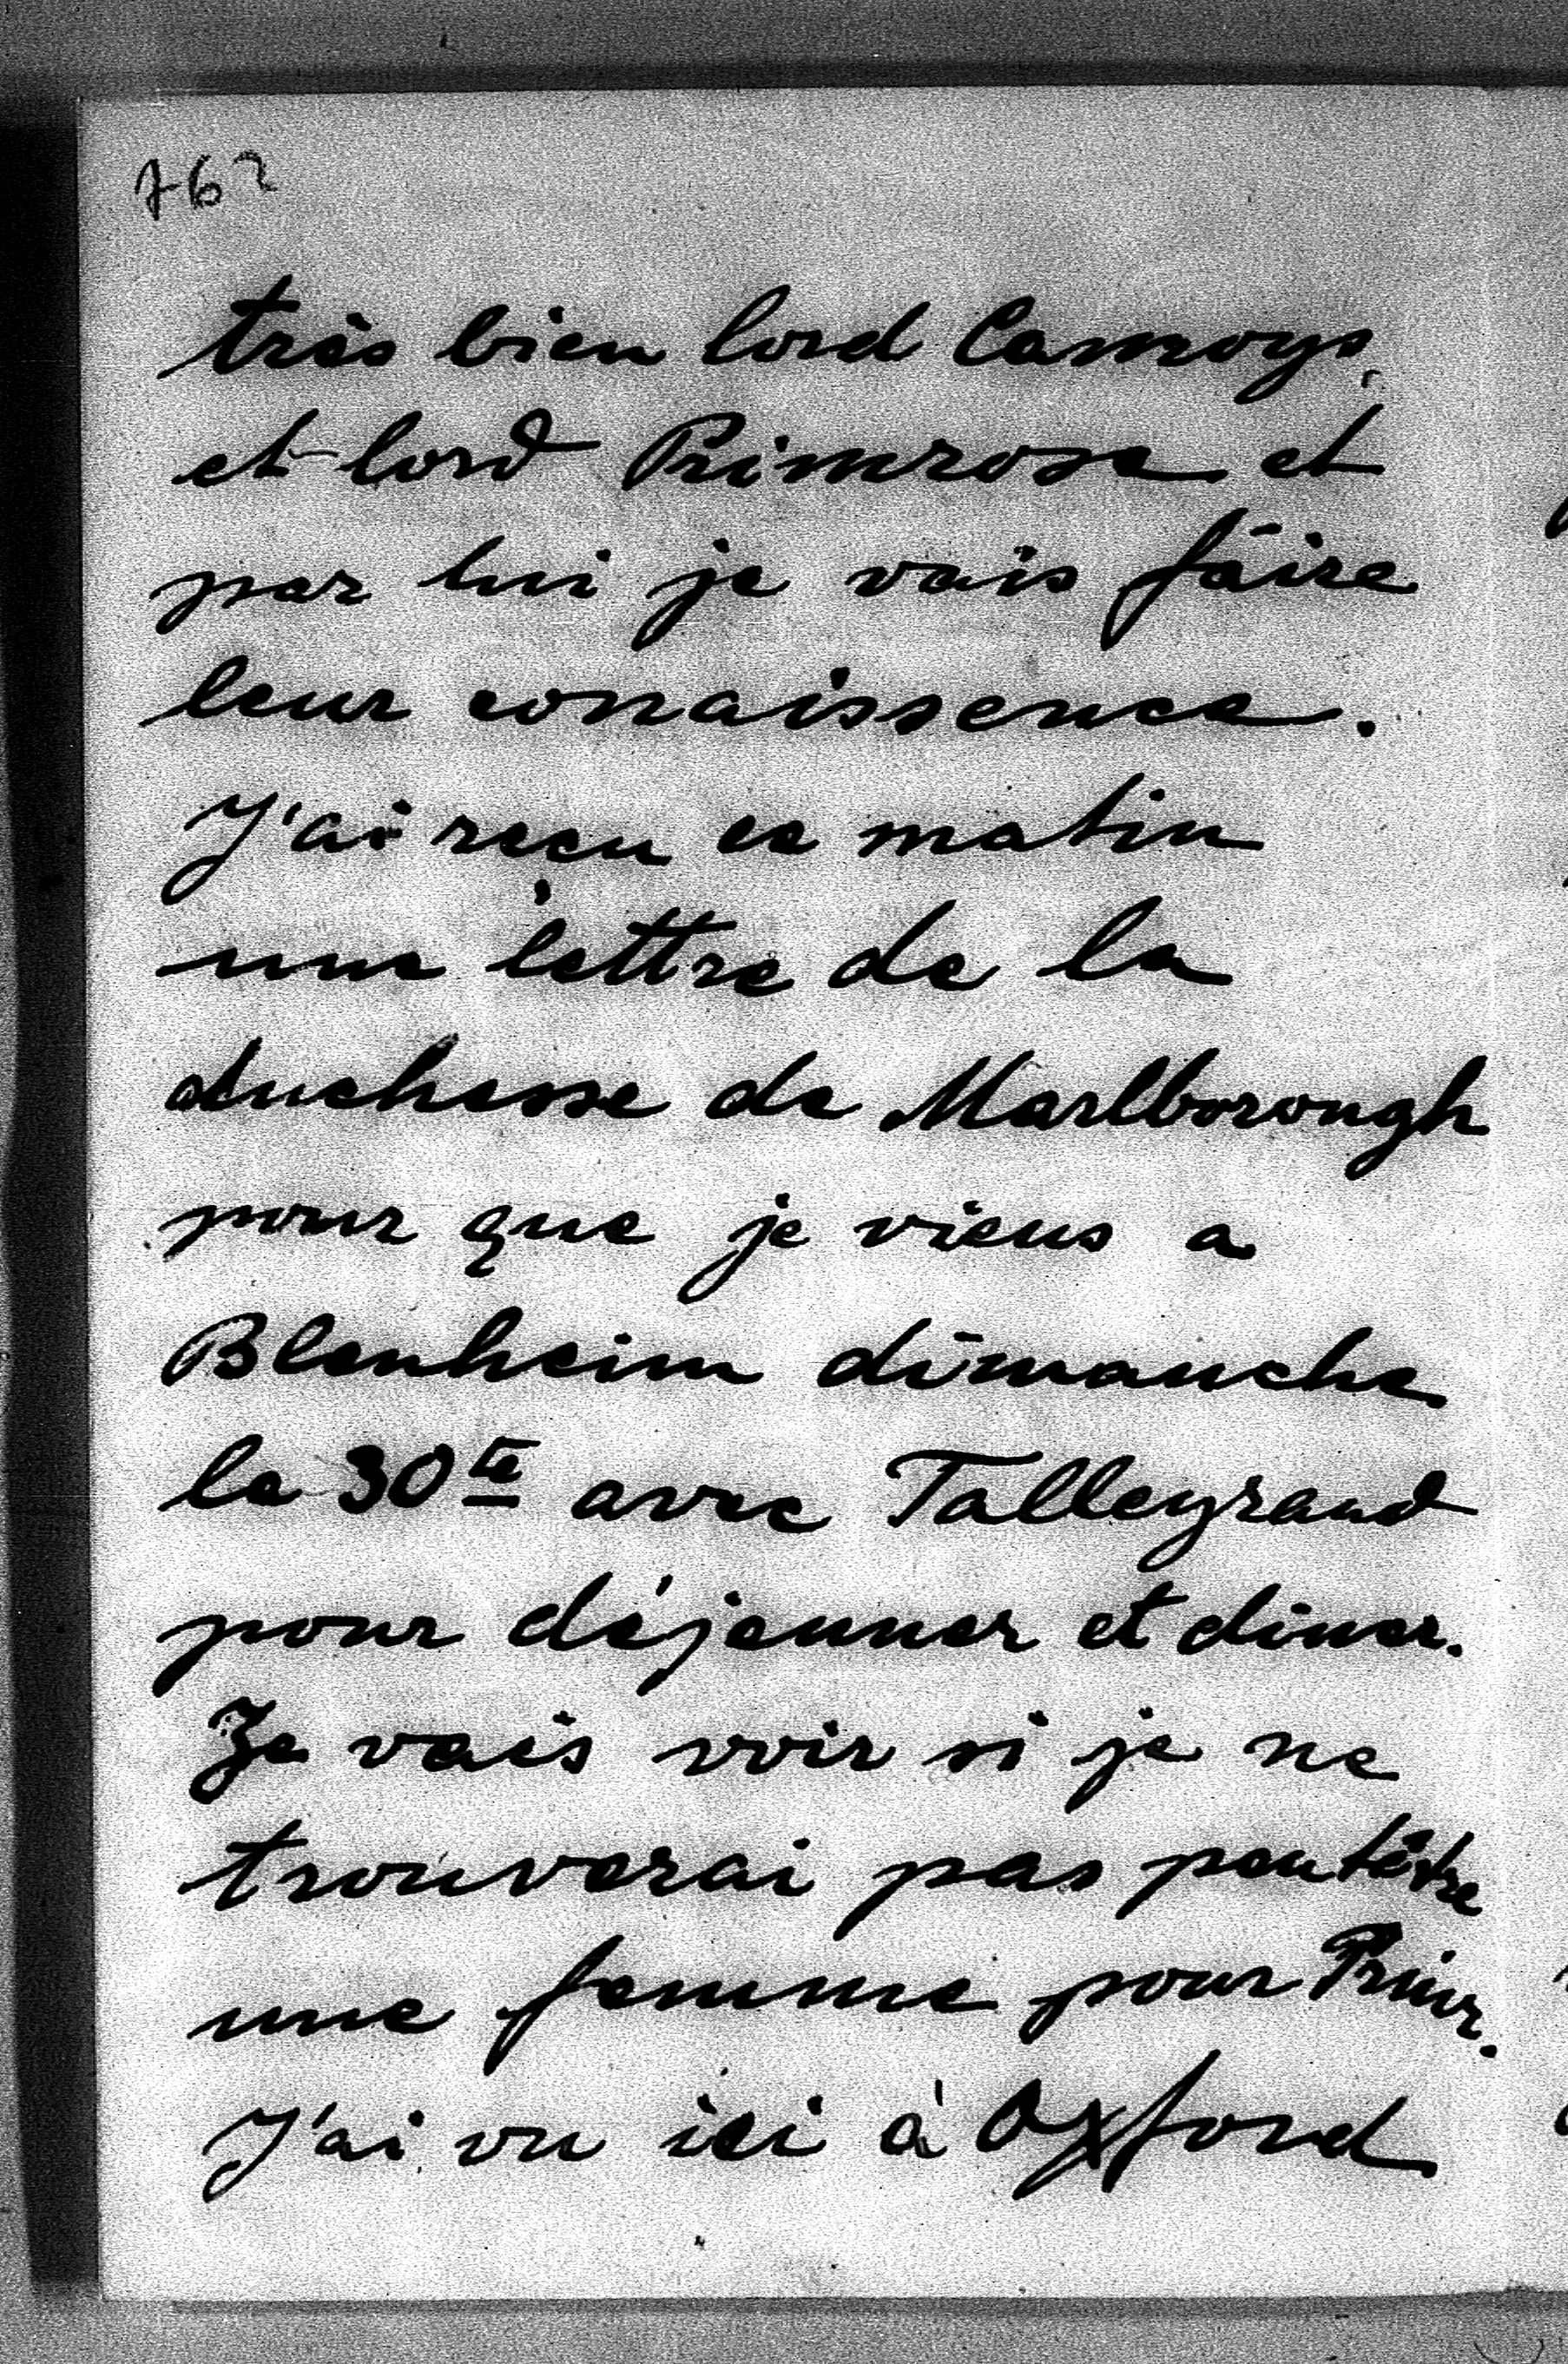 762
très bien lord Camoys,
et lord Primrose et
par lui je vais faire
leur conaissence.
J'ai reçu ce matin
une lettre de la
duchesse de Marlborough
pour que je viens a
Blenheim dimanche
le 30te avec Talleyrand
pour déjeunner et diner.
Je vais voir si je ne
trouverai pas peutêtre
une femme pour Primr.
J'ai vu ici à Oxford